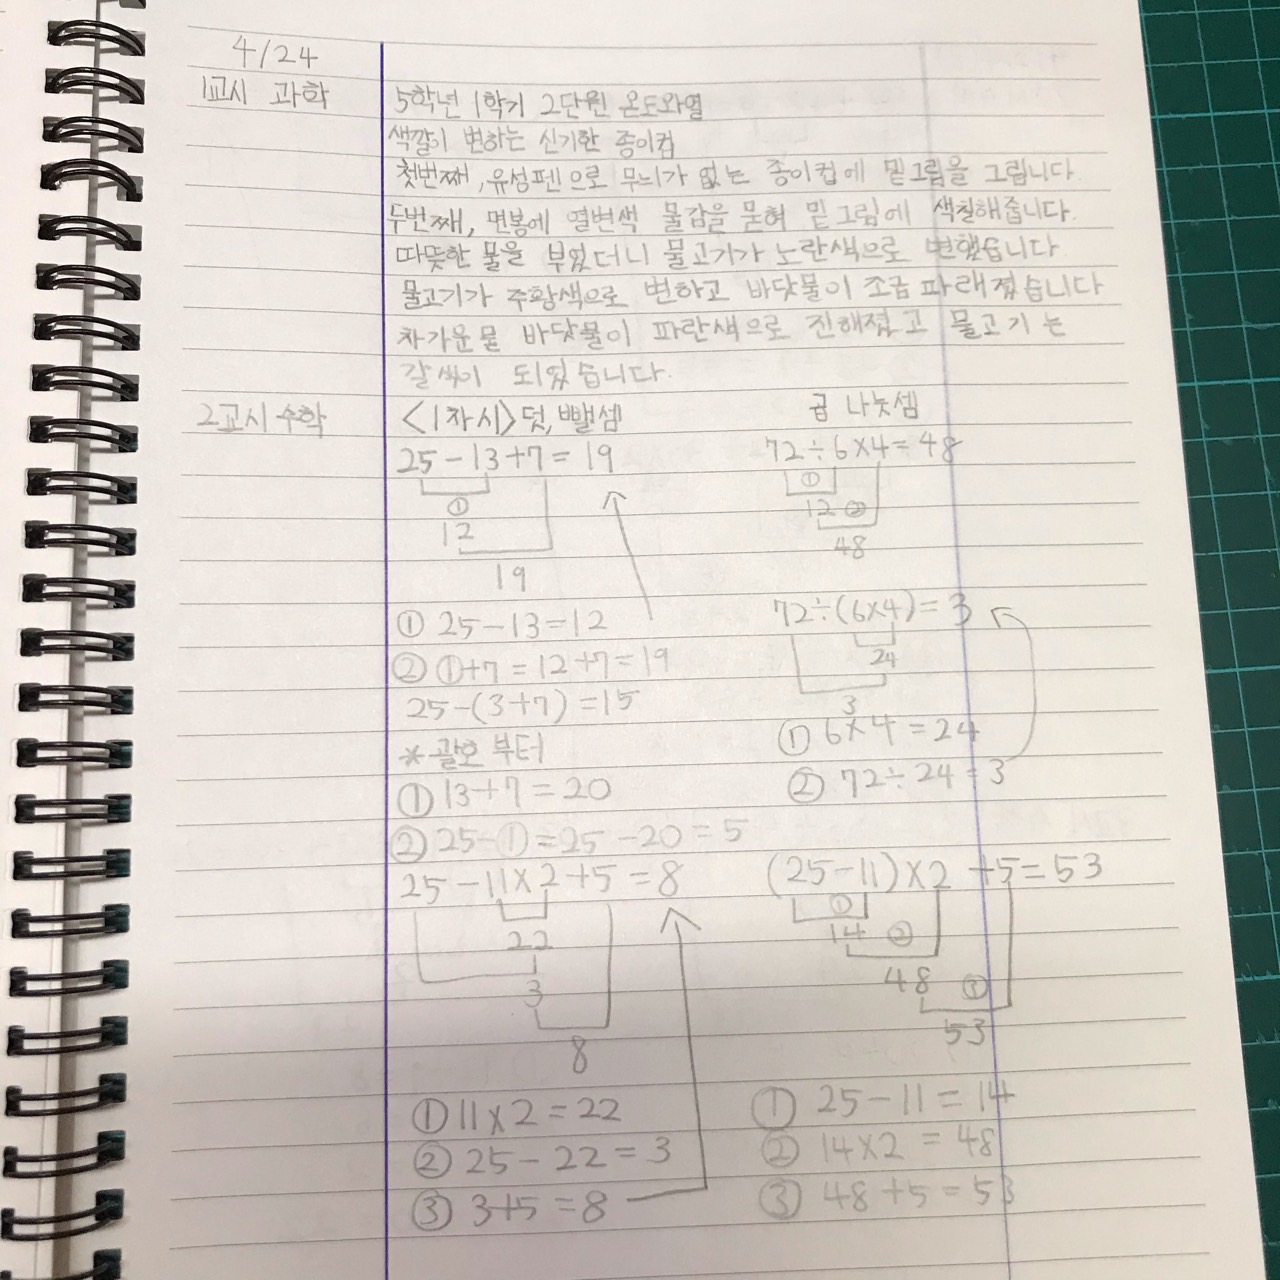 4/24
1교시 과학
5학년 1학기 2단원 온도와열
색깔이 변하는 신기한 종이컵
첫번째, 유성펜으로 무늬가 없는 종이컵에 밑그림을 그립니다
두번째, 면봉에 열변색 물감을 묻혀 밑그림에 색칠해줍니다.
따뜻한 물을 부었더니 물고기가 노란색으로 변했습니다
물고기가 주황색으로 변하고 바닷물이 조금 파래졌습니다
차가운물 바닷물이 파란색으로 진해졌고 물고기는
갈색이 되었습니다.
2교시 수학
<1차시> 덧,뺄셈
25-13+7=19
①
12
19
① 25-13=12
② ①+7=12+7=19
25-(3+7)=15
*괄호부터
① 13+7=20
② 25-①=25-20=5
25-11×2+5=8
22
3
8
① 11×2=22
② 25-22=3
③ 3+5=8
곱 나눗셈
72÷6×4=48
①
12 ②
48
72÷(6×4)=3
24
3
① 6×4=24
② 72÷24=3
(25-11)×2+5=53
①
14 ②
48 ③
53
① 25-11=14
② 14×2=48
③ 48+5=53